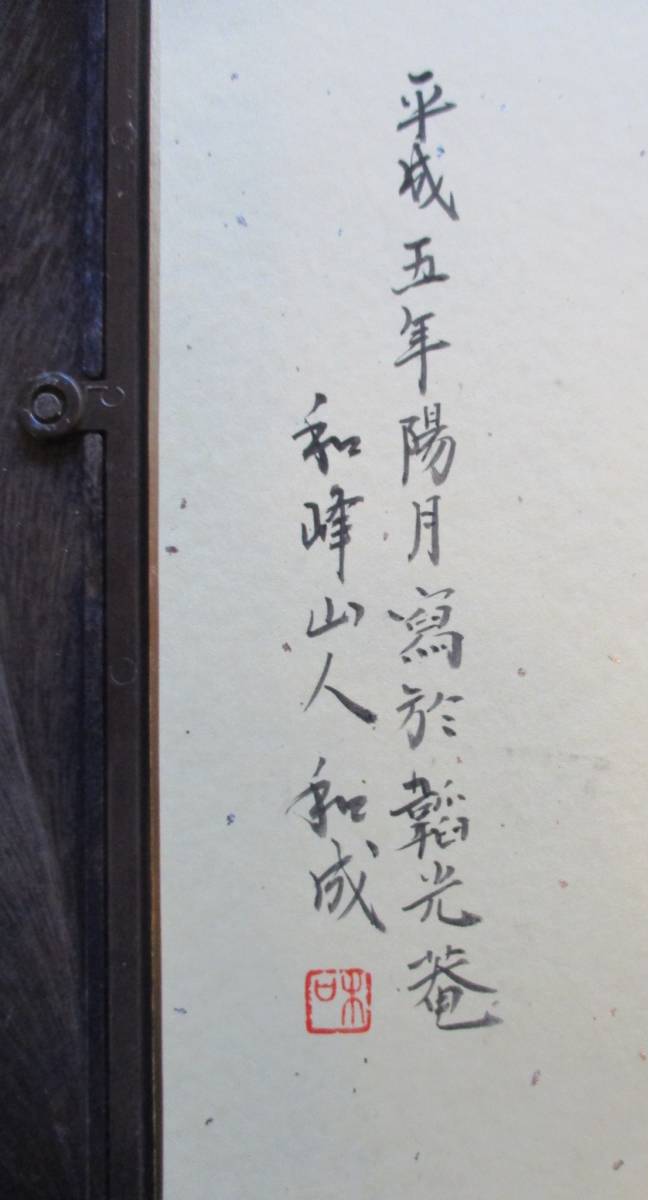 平成五年陽月寫於韜光菴
和峰山人 和成
和